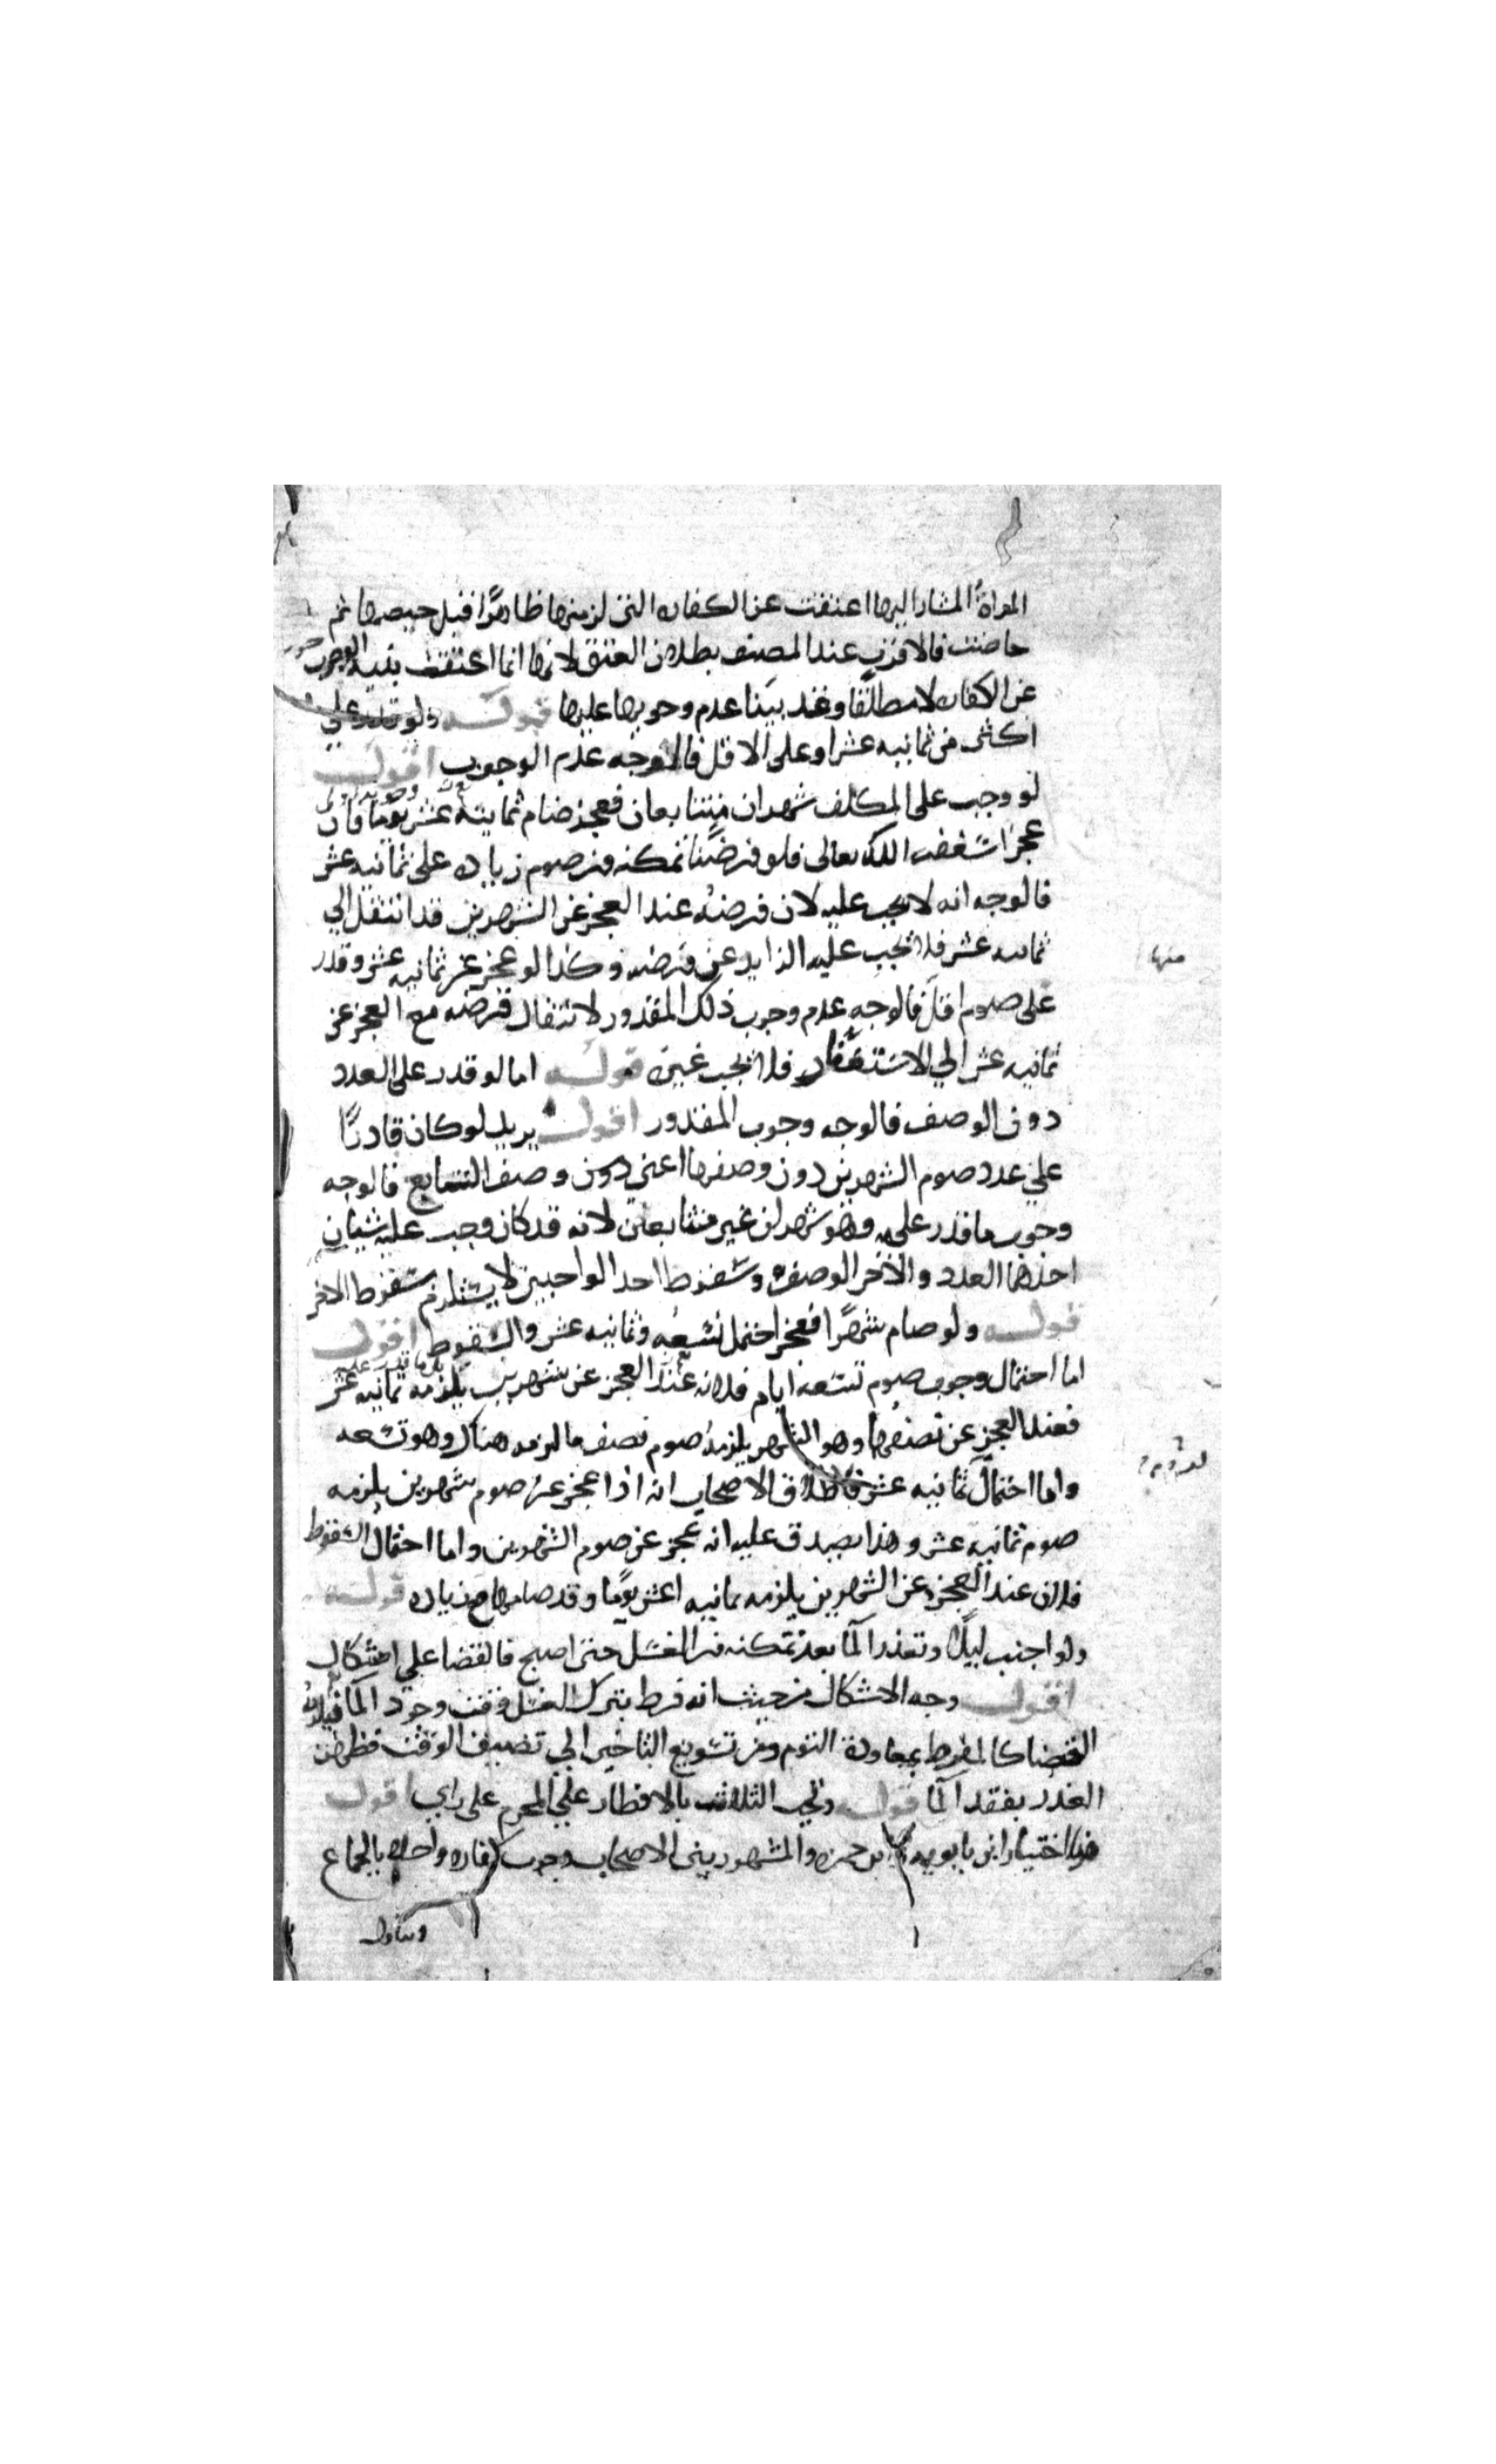 المراة المشار اليها اعتقت عن الكفاره التي لزمتها ظاهرًا قبل حيضها ثم
حاضت فالاقرب عند المصنف بطلان العتق لانها انما اعتقت بنيه الوجوب
عن الكفاره لا مطلقا وقد بينا عدم وجوبها عليها قوله ولو قدر على
اكثر من ثمانيه عشر او على الاقل فالوجه عدم الوجوب اقول
لو وجب على المكلف شهران متتابعان فعجز صام ثمانيه عشر يوما فان
عجز استغفر الله تعالى فلو فرضنا تمكنه من صوم زياده على ثمانيه عشر
فالوجه انه لا يجب عليه لان فرضه عند العجز عن الشهرين قد انتقل الي
ثمانيه عشر فلا يجب عليه الزايد عن فرضه وكذا لو عجز عن ثمانيه عشر وقدر
على صوم اقل فالوجه عدم وجوب ذلك المقدور لانتقال فرضه مع العجز عن
ثمانيه عشر الي الاستغفار فلا يجب غيره قوله اما لو قدر على العدد
دون الوصف فالوجه وجوب المقدور اقول يريد لو كان قادرًا
علي عدد صوم الشهرين دون وصفها اعني دون وصف التتابع فالوجه
وجوب ما قدر عليه وهو شهران غير متتابعين لانه قد كان وجب عليه شيان
احدهما العدد والاخر الوصف وسقوط احد الواجبين لا يستلزم سقوط الاخر
قوله ولو صام شهرًا فعجز احتمل تسعه وثمانيه عشر والسقوط اقول
اما احتمال وجوب صوم تسعه ايام فلانه عند العجز عن شهرين يلزمه ثمانيه عشر
فعند العجز عن نصفها وهو الشهر يلزمه صوم نصف ما لزمه هناك وهو تسعه
واما احتمال ثمانيه عشر فاطلاق الاصحاب انه اذا عجز عن صوم شهرين يلزمه
صوم ثمانيه عشر وهذا يصدق عليه انه عجز عن صوم الشهرين واما احتمال السقوط
فلان عند العجز عن الشهرين يلزمه ثمانيه اعشر يومًا وقد صامها مع زياده قوله
ولو اجنب ليلًا وتعذر الما بعد تمكنه من الغسل حتى اصبح فالقضا علي اشكال
اقول وجه الاشكال من حيث انه فرط بترك الغسل وقت وجود الما فيلزمه
القضا كالمفرط بمعاودة النوم ومن تسويغ التاخير الي تضييق الوقت فظهر
العذر بفقد الما قوله ويجب الثلاث بالافطار علي المحرم على راي اقول
هذا اختيار ابن بابويه وابن حمزه والمشهور بين الاصحاب وجوب كفاره واحده بالجماع
منها